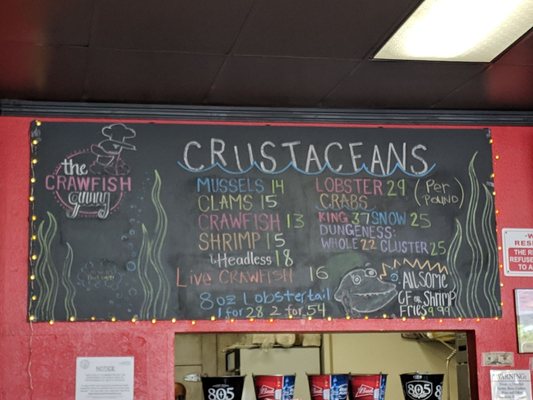 the
CRAWFISH
CRUSTACEANS
MUSSELS 14
CLAMS 15
CRAWFISH 13
SHRIMP 15
Headless 18
LIVE CRAWFISH 16
8oz Lobstertail
1 for 28 2 for 54
LOBSTER 29 (Per
POUND)
CRABS
KING 37 SNOW 25
DUNGENESS:
WHOLE 22 CLUSTER 25
AWSome
CF or Shrimp
Fries 9.99
WE RES
THE R
REFUSE
TO A
NOTICE
WARNING
805
805